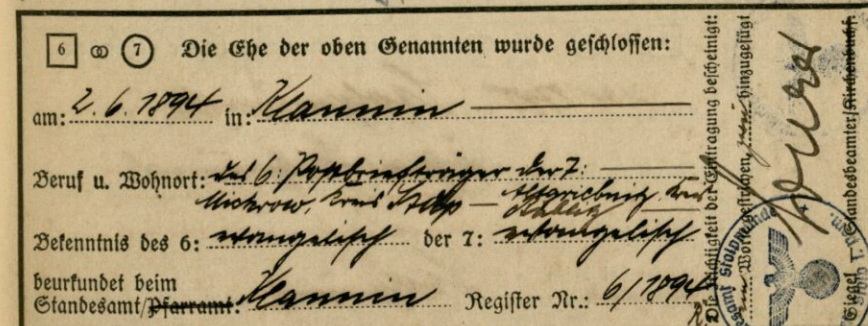 6 ∞ 7 Die Ehe der oben Genannten wurde geschlossen:
am: 2.6.1894 in: Klannin
Beruf u. Wohnort: des 6: Postbriefträger der 7:
Mickrow, Kreis Stolp —
Bekenntnis des 6: evangelisch der 7: evangelisch
beurkundet beim
Standesamt/Pfarramt: Klannin Register Nr.: 6/1894
Die Richtigkeit der Eintragung bescheinigt:
Wort gestrichen, hinzugefügt
Siegel Standesbeamter/Kirchenbuchf.
Stolpmünde